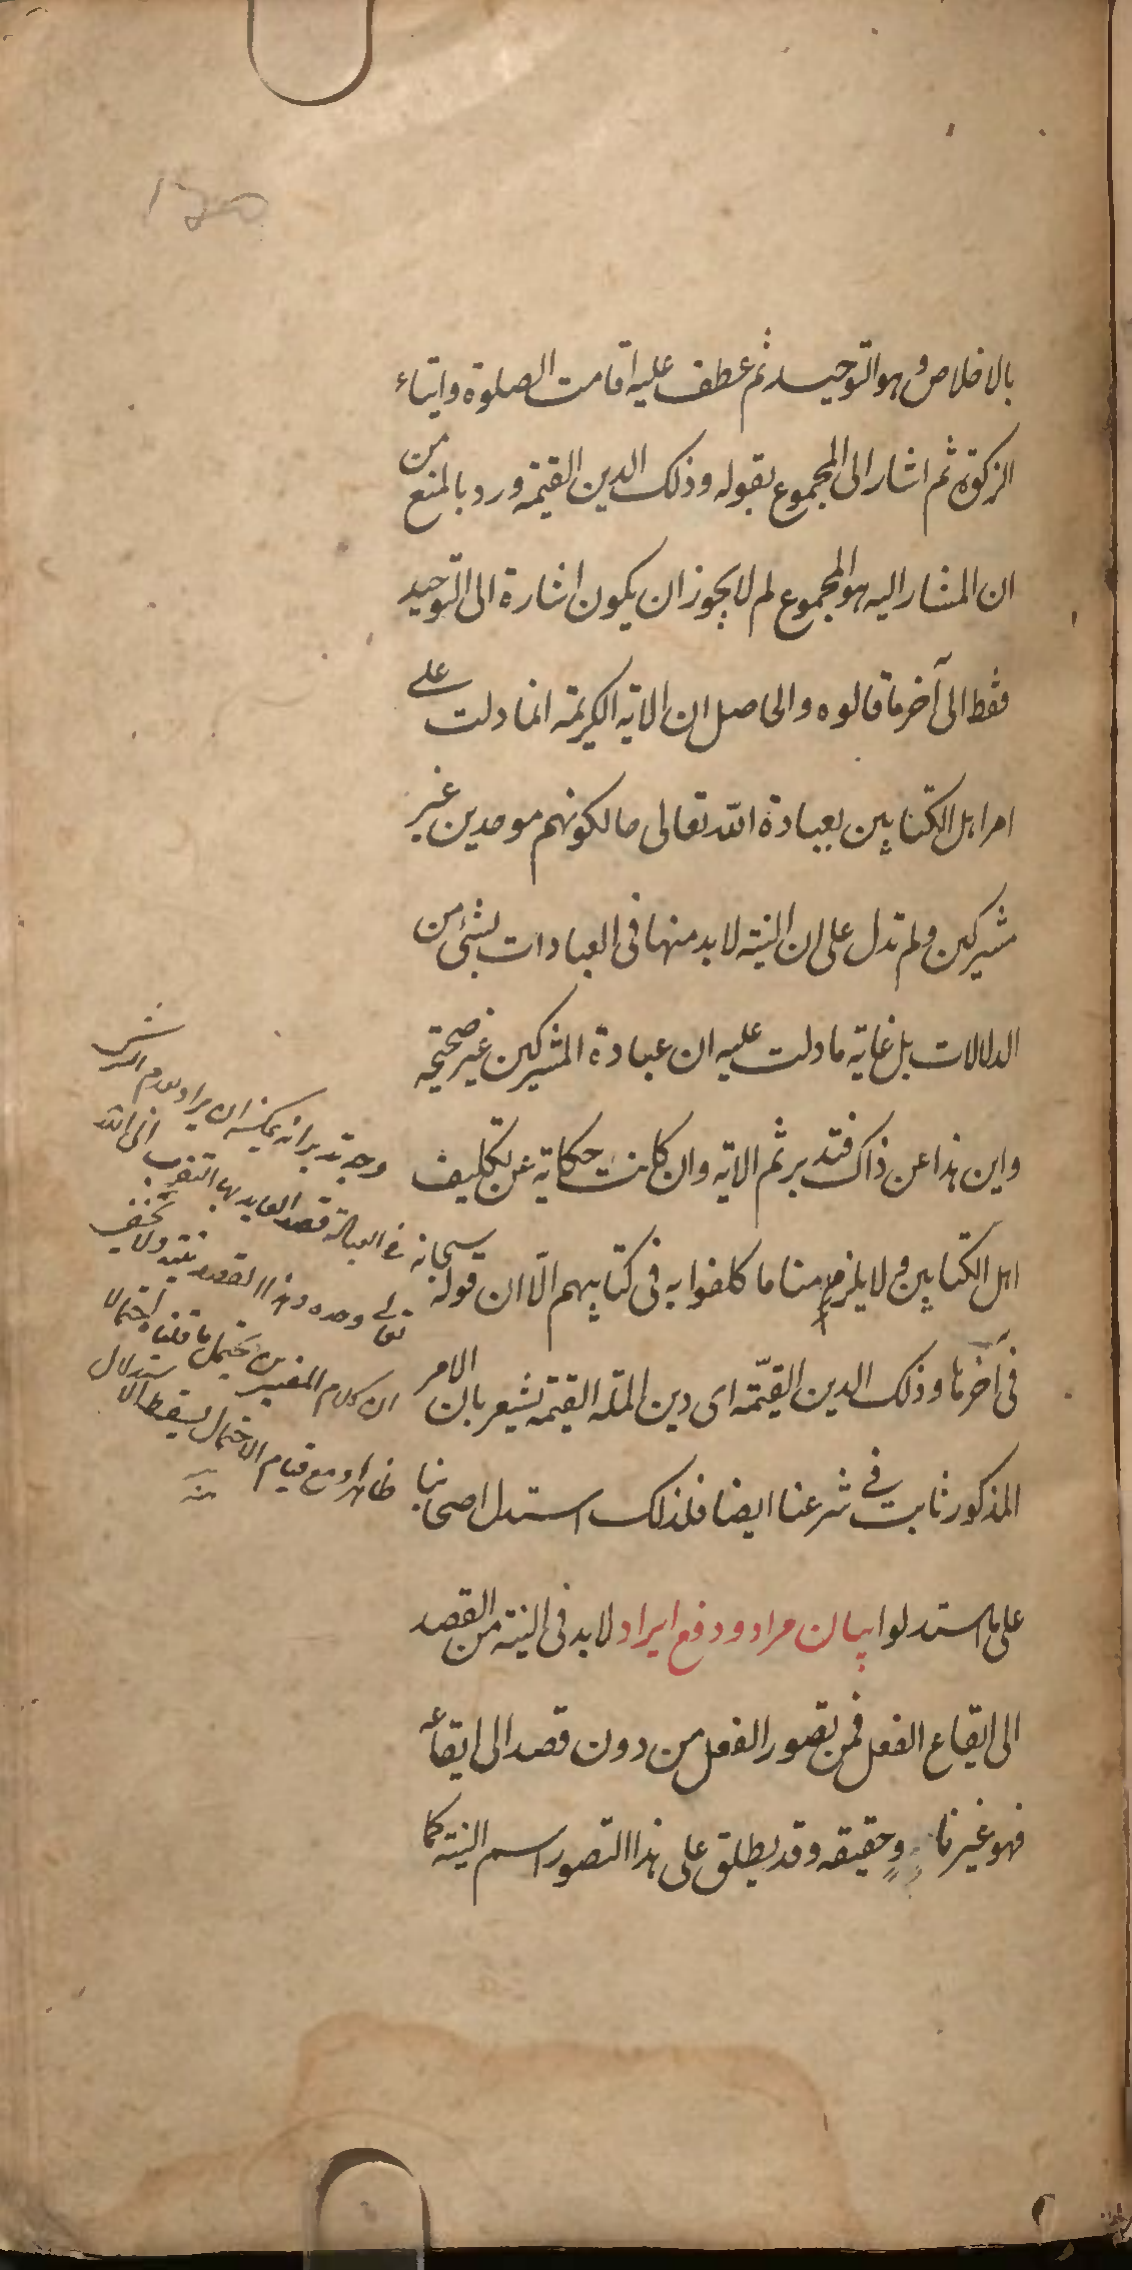 بالاخلاص وهو التوحيد ثم عطف عليه اقامت الصلوة وايتاء
الزكوة ثم اشار الى المجموع بقوله وذلك الدين القيمة ورد بالمنع من
ان المشار اليه هو المجموع لم لا يجوز ان يكون اشارة الى التوحيد
فقط الى آخر ما قالوه والحاصل ان الاية الكريمة انما دلت على
امر اهل الكتابين بعبادة الله تعالى حال كونهم موحدين غير
مشركين ولم تدل على ان النية لا بد منها فى العبادات بشئ من
الدلالات بل غاية ما دلت عليه ان عبادة المشركين غير صحيحة
واين هذا عن ذاك فتدبر ثم الاية وان كانت حكاية عن تكليف
اهل الكتابين ولا يلزم منا ما كلفوا به فى كتابيهم الّا ان قوله
فى آخرها وذلك الدين القيّمة اى دين الملة القيمة يشعر بان الامر
المذكور ثابت فى شرعنا ايضا فلذلك استدل اصحابنا
على ما استدلوا بيان مراد ودفع ايراد لا بد فى النية من القصد
الى ايقاع الفعل فمن تصور الفعل من دون قصد الى ايقاعه
فهو غير ناو حقيقة وقد يطلق على هذا التصور اسم النية كما
وجه تدبر انه يمكن ان يراد بعدم الشرك
فى العبادة قصد العابد بها التقرب الى الله
سبحانه وتعالى وحده وهذا القصد نية ولا يخفى
ان كلام المفسرين يحتمل ما قلناه احتمالا
ظاهرا ومع قيام الاحتمال يسقط الاستدلال
منه